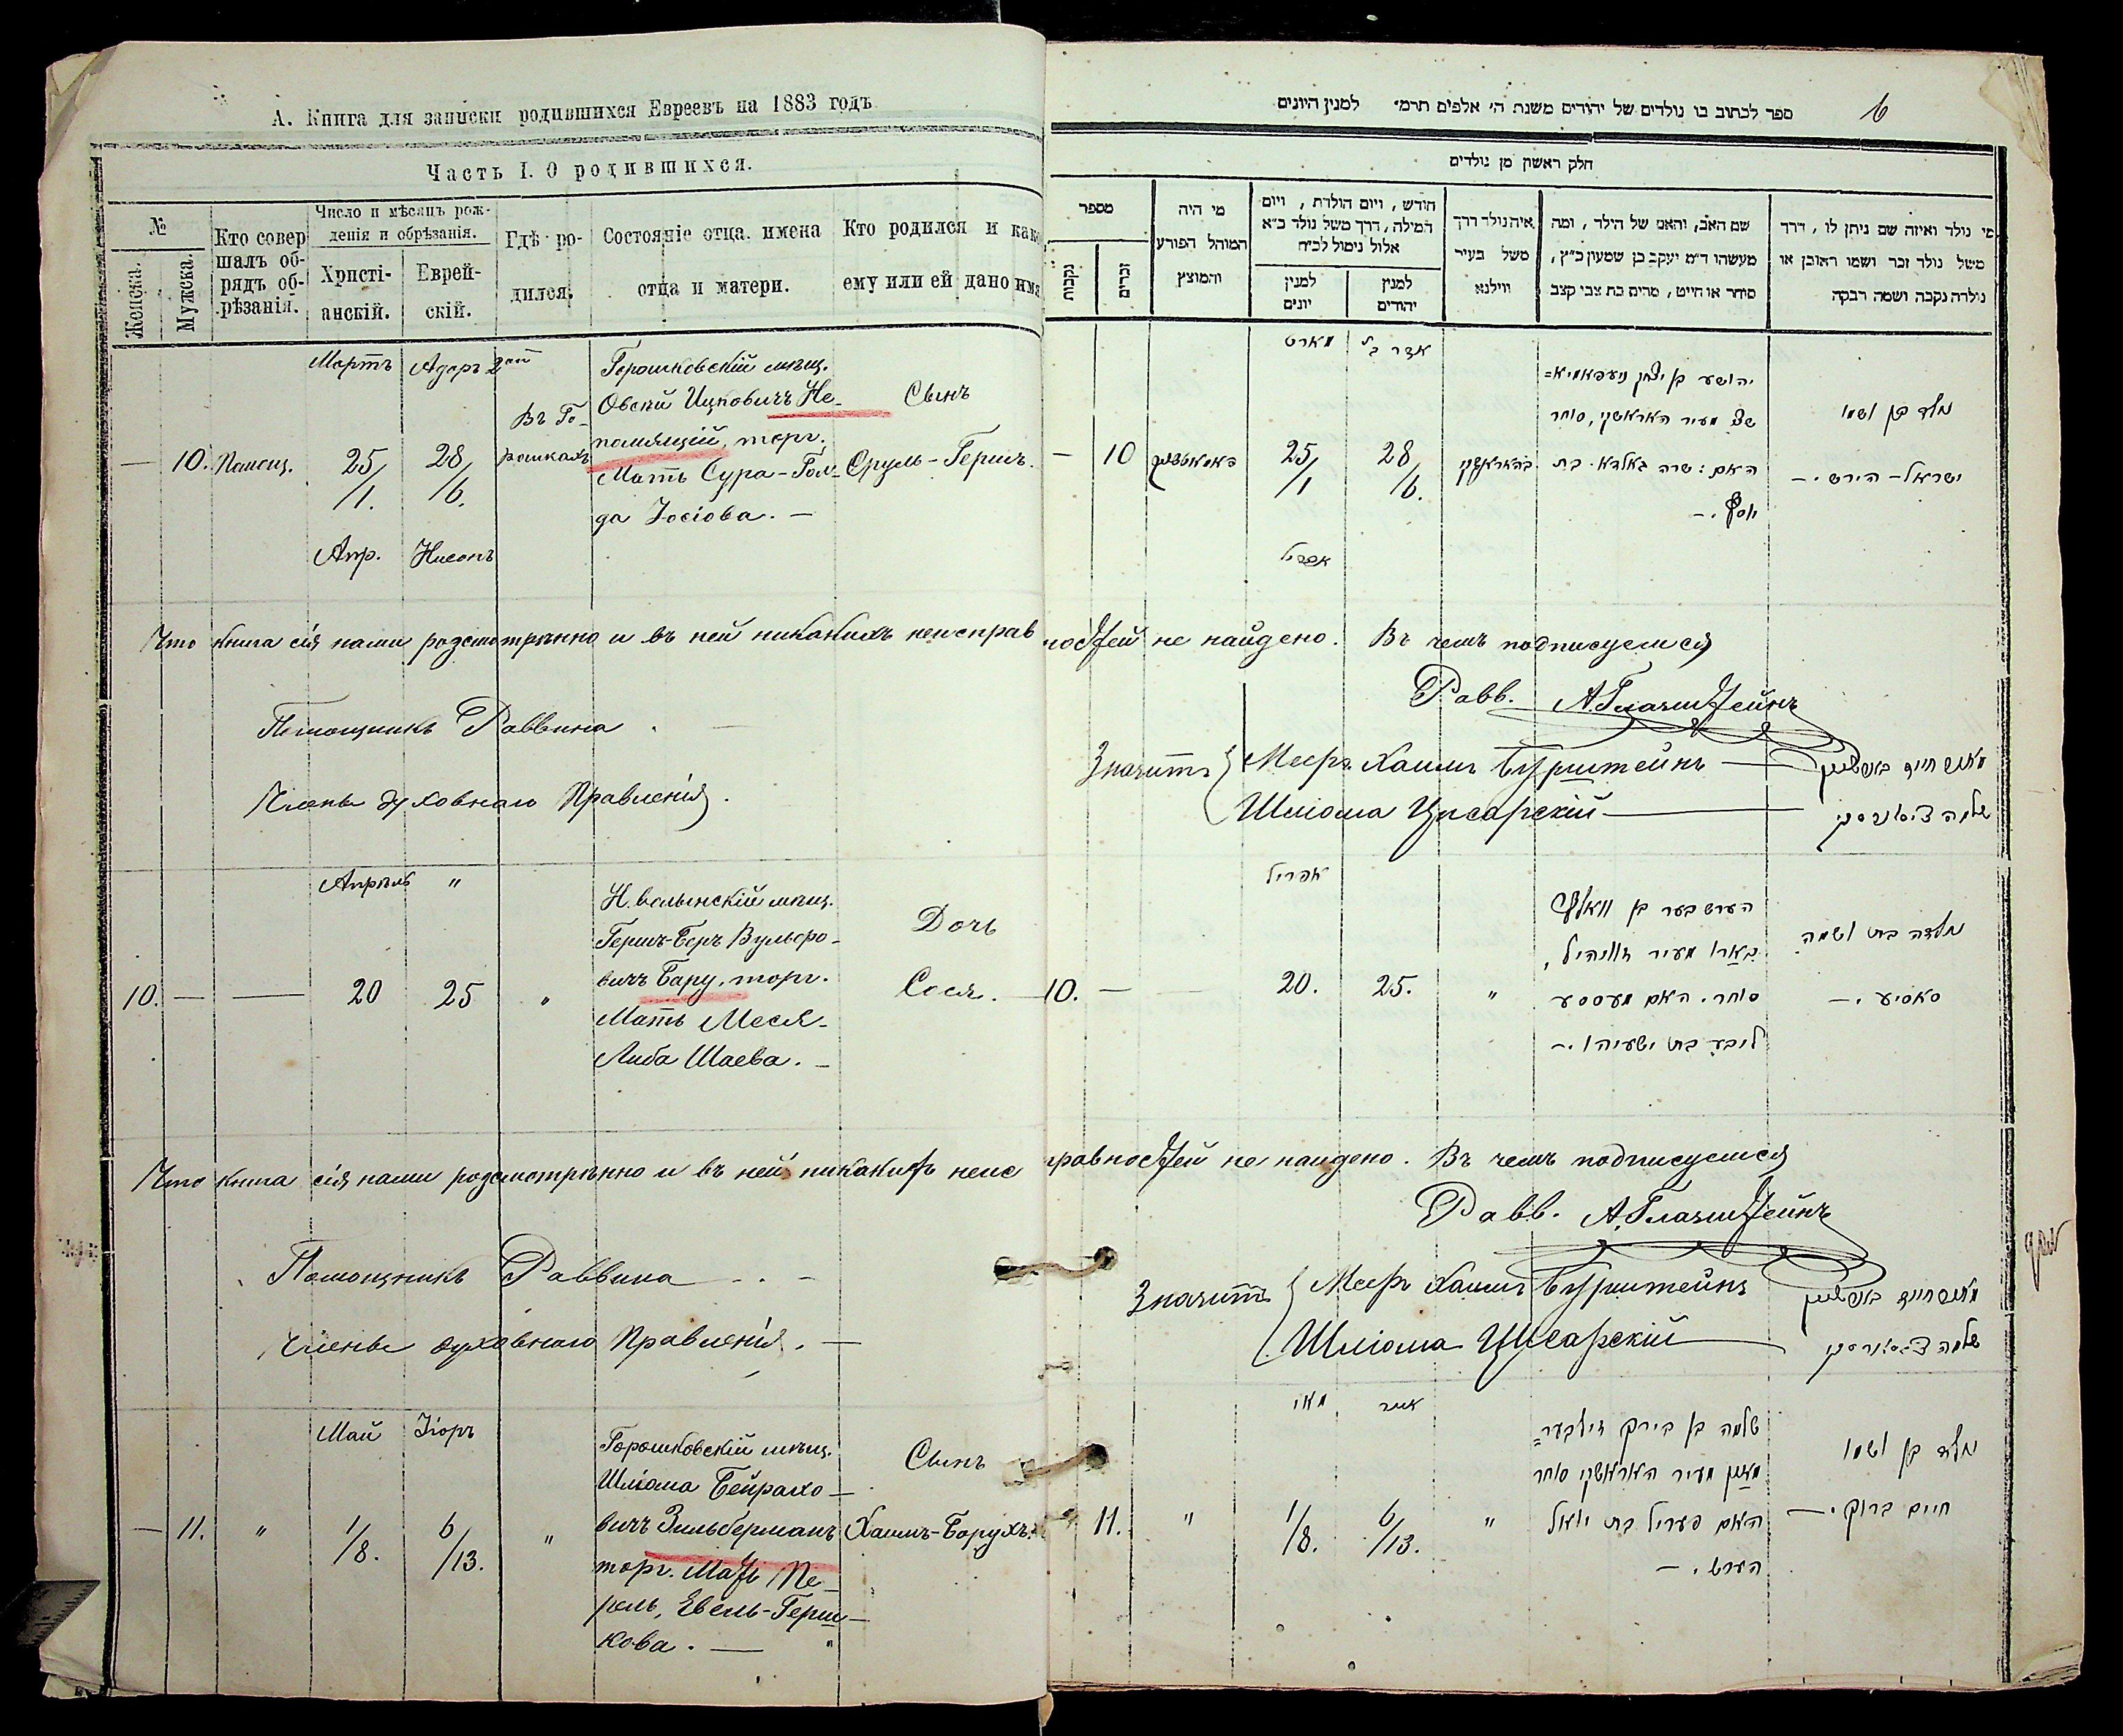 А. Книга для записки родившихся Евреевъ на 1883 годъ
Часть I. О родившихся.
№
Женска.
Мужска.
Кто совер
шалъ об-
рядъ об-
рѣзанія.
Число и мѣсяцъ рож-
денія и обрѣзанія.
Христі-
анскій.
Еврей-
скій.
Гдѣ ро-
дился.
Состояніе отца, имена
отца и матери.
Кто родился и како
ему или ей дано имя
Мартъ
Адаръ 2ой
— 10.
25/1.
28/6.
Апр.
Нисонъ
Въ Го-
рошкахъ
Горошковскій мѣщ.
Овсій Ицковичъ Не-
помнящій, торг.
Мать Сура-Гол-
да Іосіова. —
Сынъ
Сруль-Гершъ.
Что книга сія нами розсмотрѣнно и въ ней никакихъ неисправ
Помощникъ Раввина
Члены духовнаго Правленія.
Апрѣль "
10. — — 20 25 "
Н. волынскій мѣщ.
Гершъ-Беръ Вульфо-
вичъ Бару, торг.
Мать Меся-
Либа Шаева. —
Дочь
Сося. —
Что книга сія нами розсмотрѣнно и въ ней никакихъ неис
Помощникъ Раввина
Члены духовнаго Правленія. —
Май Іюръ
— 11. " 1/8. 6/13. "
Горошковскій мѣщ.
Шліома Бейрахо-
вичъ Зильберманъ
торг. Мать Пе-
рель, Евель-Герш-
кова. —
Сынъ
Хаимъ-Борухъ.
ספר לכתוב בו נולדים של יהודים משנת ה' אלפים תרמ" למנין היונים
6
חלק ראשון מן נולדים
מספר
נקבות
זכרים
מי היה
המוהל הפורע
והמוצץ
חודש, ויום הולדת, ויום
המילה, דרך משל נולד כ"א
אלול נימול לכ"ח
למנין
יונים
למנין
יהודים
איה נולד דרך
משל בעיר
ווילנא
שם האב, והאם של הילד, ומה
מעשהו ד"מ יעקב בן שמעון כ"ץ,
סוחר או חייט, מרים בת צבי קצב
מי נולד ואיזה שם ניתן לו, דרך
משל נולד זכר ושמו ראובן או
נולדה נקבה ושמה רבקה
מארט
— 10
25/1
28/6.
אפריל
יהושע בן יצחק
מעיר האראשקי, סוחר
האם: שרה גאלדא בת
יוסף. —
נולד בן ושמו
ישראל-הירש. —
ностей не найдено. Въ чемъ подписуемся
Равв. А. Глазштейнъ
Значитъ
Меер Хаимъ Бурштейнъ —
Шліома Цисарскій —
אפריל
10. — — 20. 25. "
הערש בער בן וואלף
בארו מעיר
סוחר. האם מעססע
ליבע בת ישעיהו. —
נולדה בת ושמה
סאסיע. —
равностей не найдено. Въ чемъ подписуемся
Равв. А. Глазштейнъ
Значитъ
Меер Хаимъ Бурштейнъ
Шліома Цисарскій
מאי
אייר
11. " 1/8. 6/13. "
שלמה בן בירך זילבער=
מאן מעיר האראשקי סוחר
האם פעריל בת יואל
הערש. —
נולד בן ושמו
חיים ברוך. —